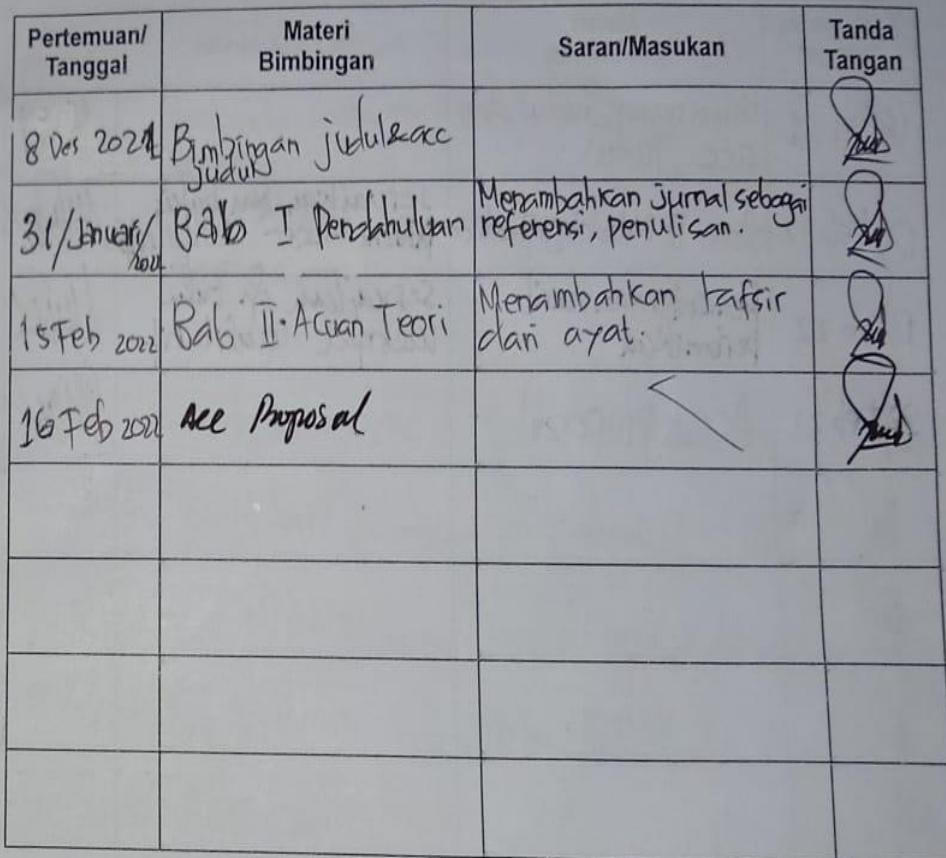 Pertemuan/
Tanggal
Materi
Bimbingan
Saran/Masukan
Tanda
Tangan
8 Des 2021
Bimbingan judul&acc
judul
31/Januari/
Bab I Pendahuluan
Menambahkan jurnal sebagai
referensi, penulisan.
15 Feb 2022
Bab II. Acuan Teori
Menambahkan tafsir
dari ayat.
16 Feb 2022
Acc Proposal